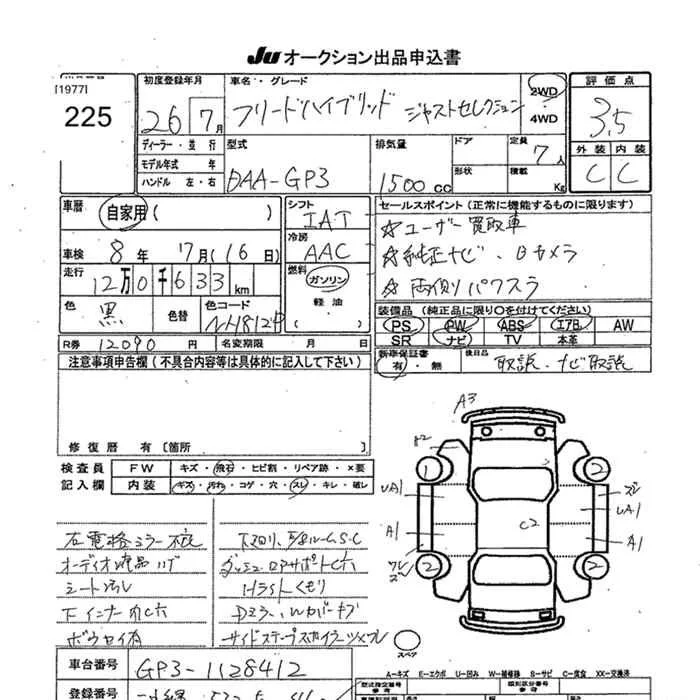 Ju オークション出品申込書
[1977]
225
初度登録年月
26 7月
車名・グレード
フリードハイブリッド ジャストセレクション
2WD
4WD
評価点
3.5
外装 内装
C C
ディーラー・並行
モデル年式 年
ハンドル 左・右
型式
DAA-GP3
排気量
1500cc
ドア
形状
定員
7人
積載
Kg
車暦
自家用( )
車検 8年 7月(16日)
走行
12万0千633km
色
黒
色替
色コード
R券 12090円
名変期限 月 日
シフト
IAT
冷房
AAC
燃料
ガソリン
軽油
( )
セールスポイント(正常に機能するものに限ります)
☆ユーザー買取車
☆純正ナビ、Bカメラ
☆両側パワスラ
装備品(純正品に限り○を付けてください)
PS PW ABS エアB AW
SR ナビ TV 本革
新車保証書
有・無
後日品
取説、ナビ取説
注意事項申告欄(不具合内容等は具体的に記入して下さい)
修復暦 有〔箇所 〕
検査員
記入欄
FW キズ・飛石・ヒビ割・リペア跡・×要
内装 キズ・汚れ・コゲ・穴・スレ・キレ・破レ
A3
1
2
UA1
A1
C2
2
2
スレ
UA1
A1
オーディオ液晶ハゲ
シート汚レ
下インナー爪欠
ダッシュ
Hライトくもり
サイドステップ
スペア
車台番号
GP3-1128412
登録番号
A-キズ E-エクボ U-凹み W-補修換 S-サビ C-腐食 XX-交換済
型式指定番号
参考
類別区分番号
参考